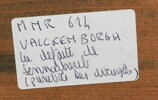 MMR 614
VALCKEMBORGH.
La défaite de
Sennacherib
(parabole des aveugles)